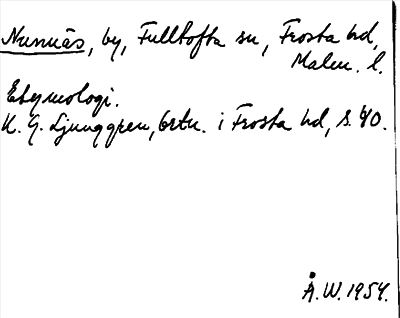 Nunnäs, by, Fulltofta sn, Frosta hd,
Malm. l.
Etymologi.
K. G. Ljunggren, Ortn. i Frosta hd, s. 40.
Å. W. 1954.